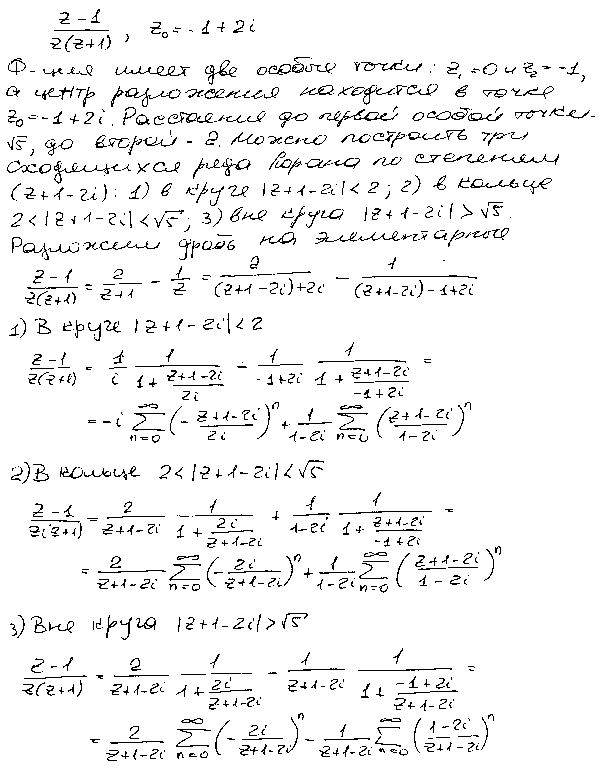 (z-1)/(z(z+1)), z₀=-1+2i
Ф-ция имеет две особые точки: z₁=0 и z₂=-1,
а центр разложения находится в точке
z₀=-1+2i. Расстояние до первой особой точки-
√5, до второй - 2. Можно построить три
сходящихся ряда Лорана по степеням
(z+1-2i): 1) в круге |z+1-2i|<2; 2) в кольце
2<|z+1-2i|<√5; 3) вне круга |z+1-2i|>√5.
Разложим дробь на элементарные
(z-1)/(z(z+1)) = 2/(z+1) - 1/z = 2/((z+1-2i)+2i) - 1/((z+1-2i)-1+2i)
1) В круге |z+1-2i|<2
(z-1)/(z(z+1)) = 1/i · 1/(1+(z+1-2i)/(2i)) - 1/(-1+2i) · 1/(1+(z+1-2i)/(-1+2i)) =
= -i ∑_{n=0}^{∞} (-(z+1-2i)/(2i))ⁿ + 1/(1-2i) ∑_{n=0}^{∞} ((z+1-2i)/(1-2i))ⁿ
2) В кольце 2<|z+1-2i|<√5
(z-1)/(z(z+1)) = 2/(z+1-2i) · 1/(1+2i/(z+1-2i)) + 1/(1-2i) · 1/(1+(z+1-2i)/(-1+2i)) =
= 2/(z+1-2i) ∑_{n=0}^{∞} (-2i/(z+1-2i))ⁿ + 1/(1-2i) ∑_{n=0}^{∞} ((z+1-2i)/(1-2i))ⁿ
3) Вне круга |z+1-2i|>√5
(z-1)/(z(z+1)) = 2/(z+1-2i) · 1/(1+2i/(z+1-2i)) - 1/(z+1-2i) · 1/(1+(-1+2i)/(z+1-2i)) =
= 2/(z+1-2i) ∑_{n=0}^{∞} (-2i/(z+1-2i))ⁿ - 1/(z+1-2i) ∑_{n=0}^{∞} ((1-2i)/(z+1-2i))ⁿ